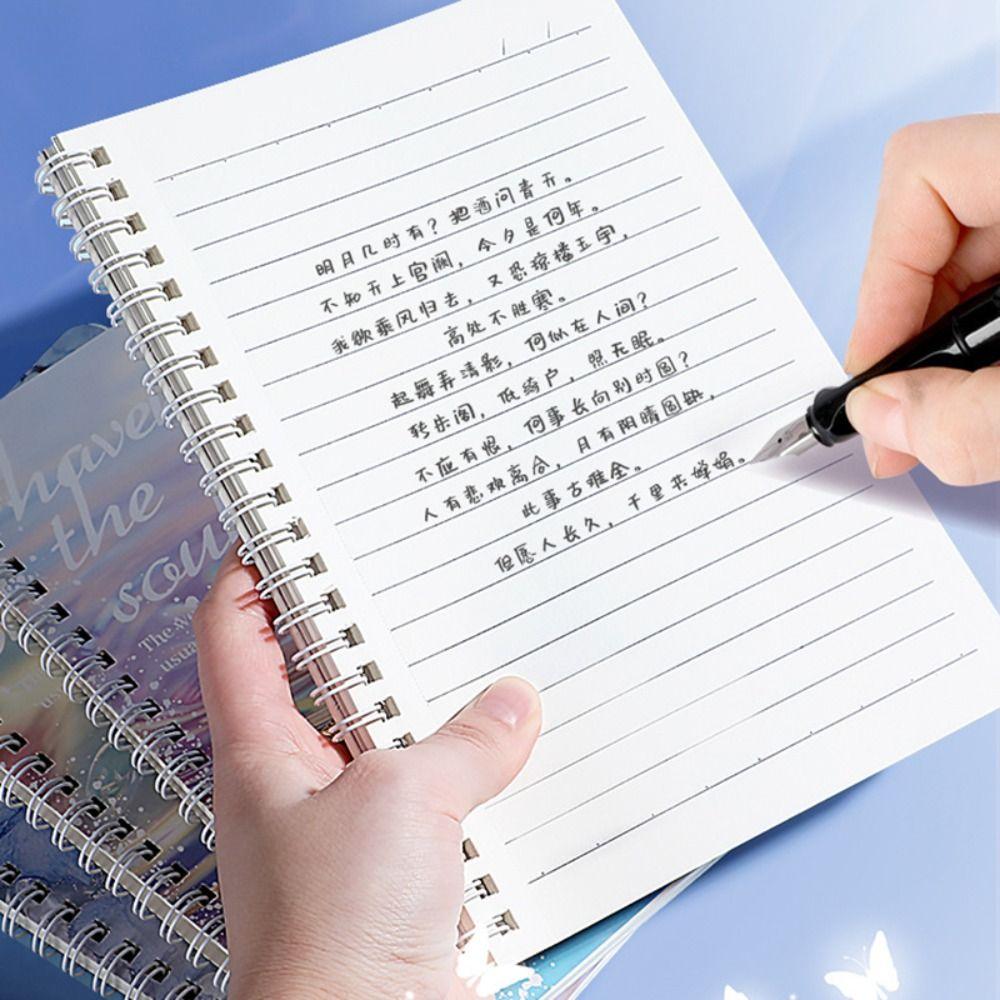 明月几时有？把酒问青天。
不知天上宫阙，今夕是何年。
我欲乘风归去，又恐琼楼玉宇，
高处不胜寒。
起舞弄清影，何似在人间？
转朱阁，低绮户，照无眠。
不应有恨，何事长向别时圆？
人有悲欢离合，月有阴晴圆缺，
此事古难全。
但愿人长久，千里共婵娟。
have
the
sou
The wo
usua